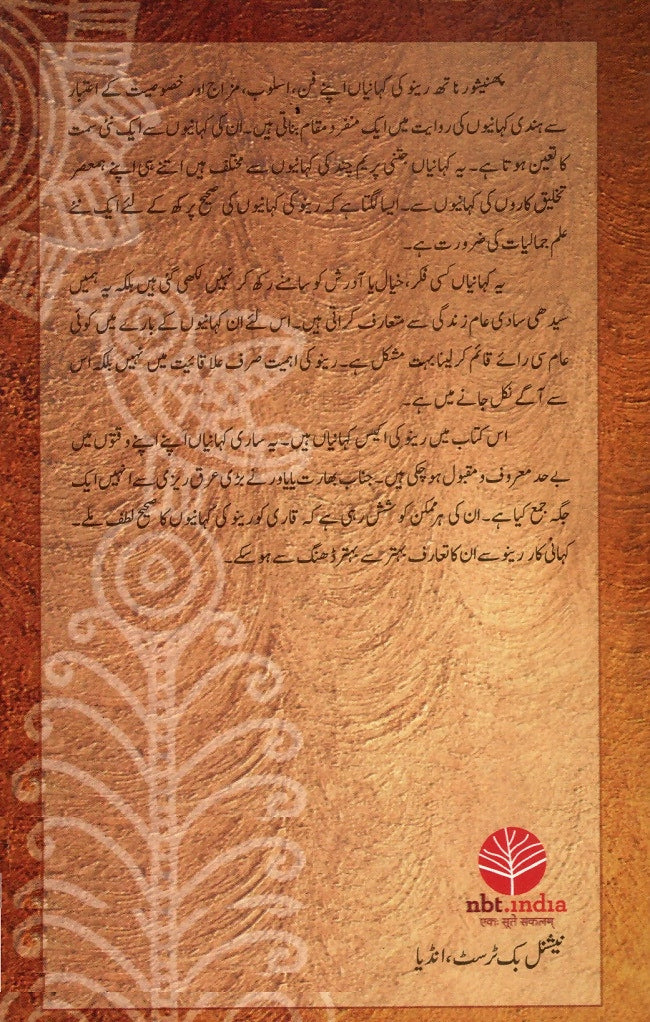 پھنیشور ناتھ رینو کی کہانیاں اپنے فن، اسلوب، مزاج اور خصوصیت کے اعتبار
سے ہندی کہانیوں کی روایت میں ایک منفرد مقام بناتی ہیں۔ ان کی کہانیوں سے ایک نئی سمت
کا تعین ہوتا ہے۔ یہ کہانیاں جتنی پریم چند کی کہانیوں سے مختلف ہیں اتنے ہی اپنے ہمعصر
تخلیق کاروں کی کہانیوں سے۔ ایسا لگتا ہے کہ رینو کی کہانیوں کی صحیح پرکھ کے لئے ایک نئے
علم جمالیات کی ضرورت ہے۔
یہ کہانیاں کسی فکر، خیال یا آدرش کو سامنے رکھ کر نہیں لکھی گئی ہیں بلکہ یہ ہمیں
سیدھی سادی عام زندگی سے متعارف کراتی ہیں۔ اس لئے ان کہانیوں کے بارے میں کوئی
عام سی رائے قائم کر لینا بہت مشکل ہے۔ رینو کی اہمیت صرف علاقائیت میں نہیں بلکہ اس
سے آگے نکل جانے میں ہے۔
اس کتاب میں رینو کی اکیس کہانیاں ہیں۔ یہ ساری کہانیاں اپنے اپنے وقتوں میں
بے حد معروف و مقبول ہو چکی ہیں۔ جناب بھارت یایاور نے بڑی عرق ریزی سے انہیں ایک
جگہ جمع کیا ہے۔ ان کی ہر ممکن کوشش رہی ہے کہ قاری کو رینو کی کہانیوں کا صحیح لطف ملے۔
کہانی کار رینو سے ان کا تعارف بہتر سے بہتر ڈھنگ سے ہو سکے۔
nbt.india
एकः सूते सकलम्
نیشنل بک ٹرسٹ، انڈیا